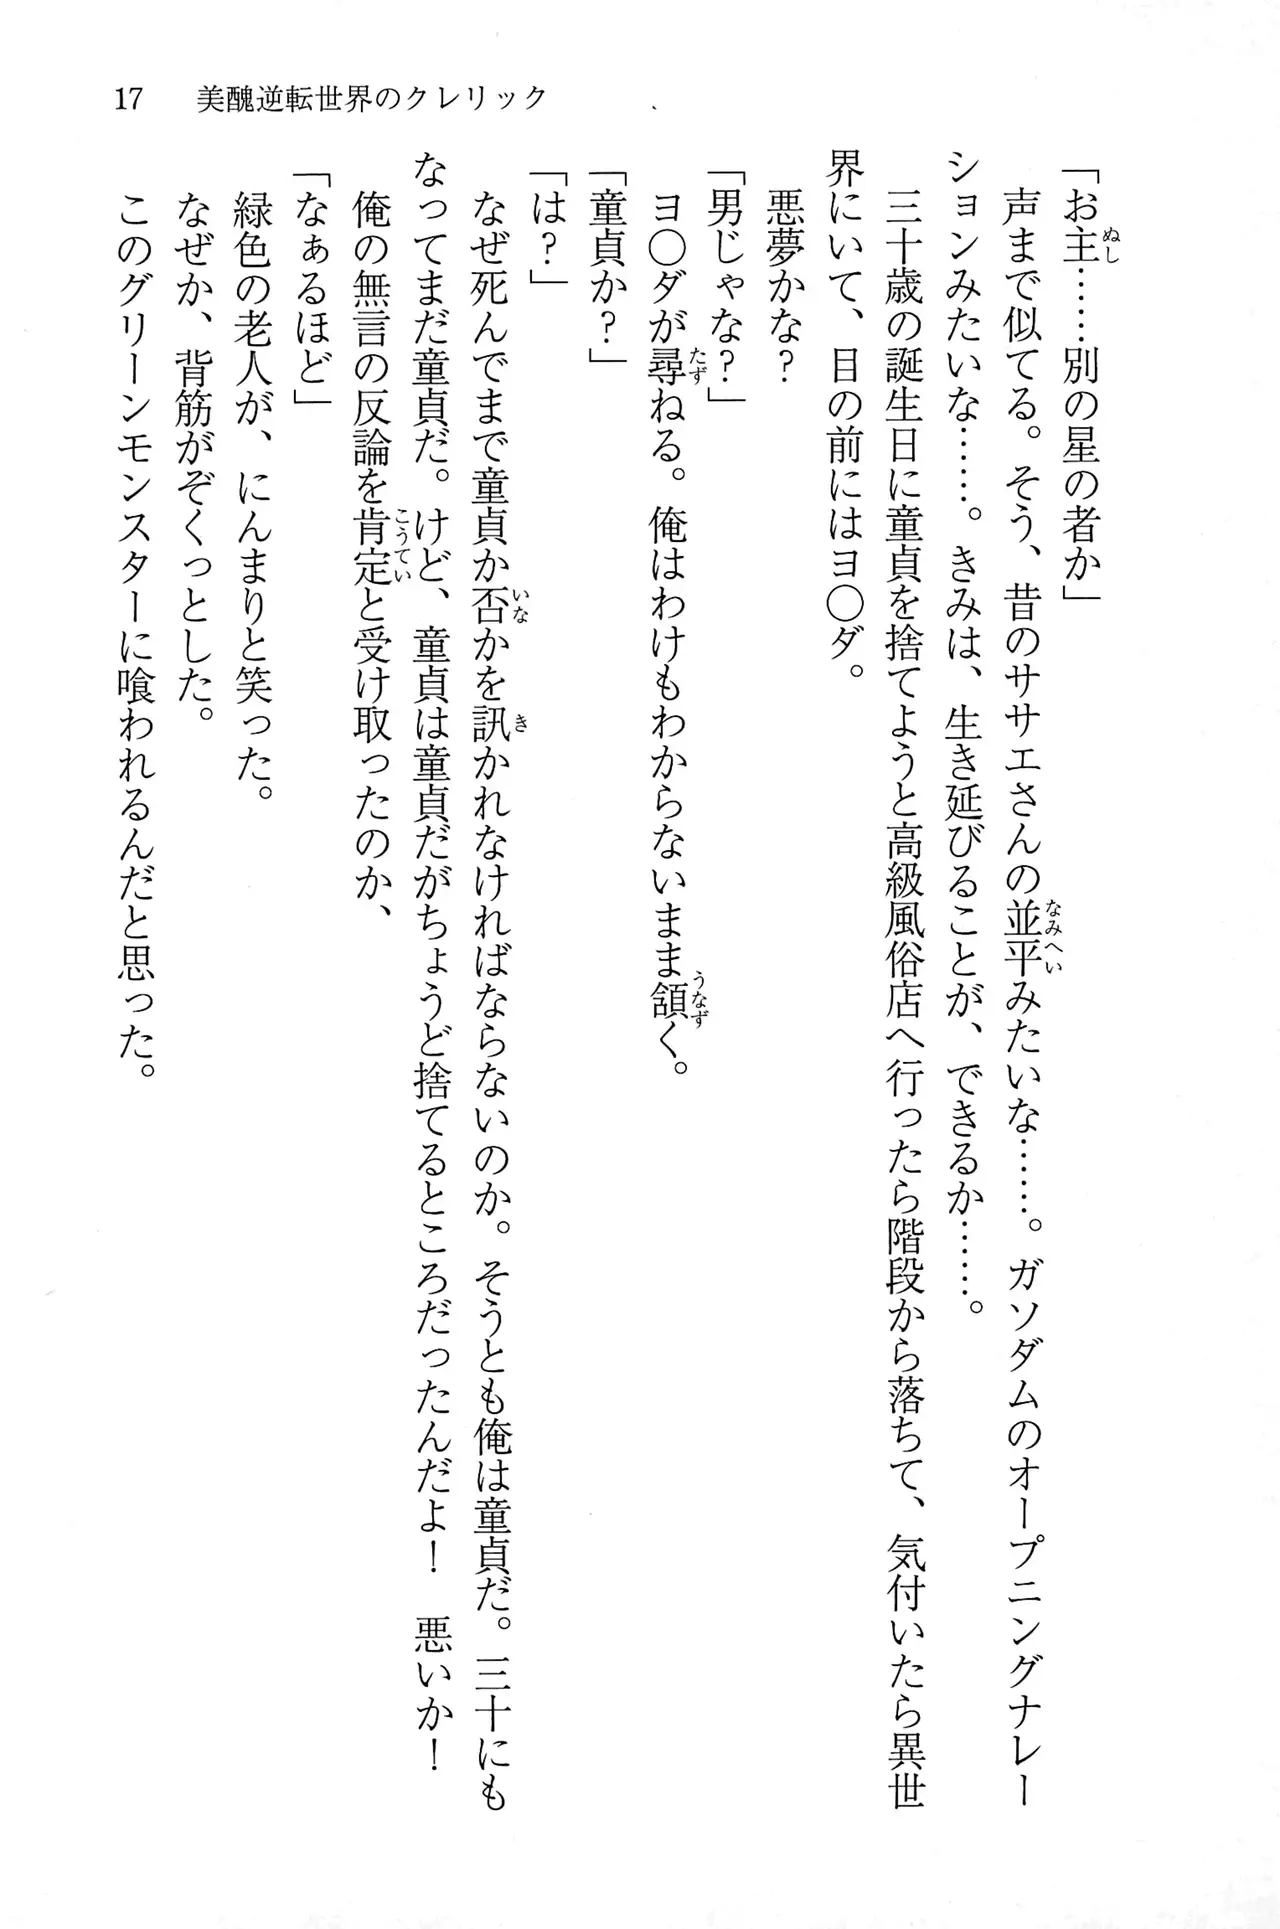 17 美醜逆転世界のクレリック
「お主……別の星の者か」
声まで似てる。そう、昔のササエさんの並平みたいな……。ガソダムのオープニングナレー
ションみたいな……。きみは、生き延びることが、できるか……。
三十歳の誕生日に童貞を捨てようと高級風俗店へ行ったら階段から落ちて、気付いたら異世
界にいて、目の前にはヨ〇ダ。
悪夢かな?
「男じゃな?」
ヨ〇ダが尋ねる。俺はわけもわからないまま頷く。
「童貞か?」
「は?」
なぜ死んでまで童貞か否かを訊かれなければならないのか。そうとも俺は童貞だ。三十にも
なってまだ童貞だ。けど、童貞は童貞だがちょうど捨てるところだったんだよ! 悪いか!
俺の無言の反論を肯定と受け取ったのか、
「なぁるほど」
緑色の老人が、にんまりと笑った。
なぜか、背筋がぞくっとした。
このグリーンモンスターに喰われるんだと思った。